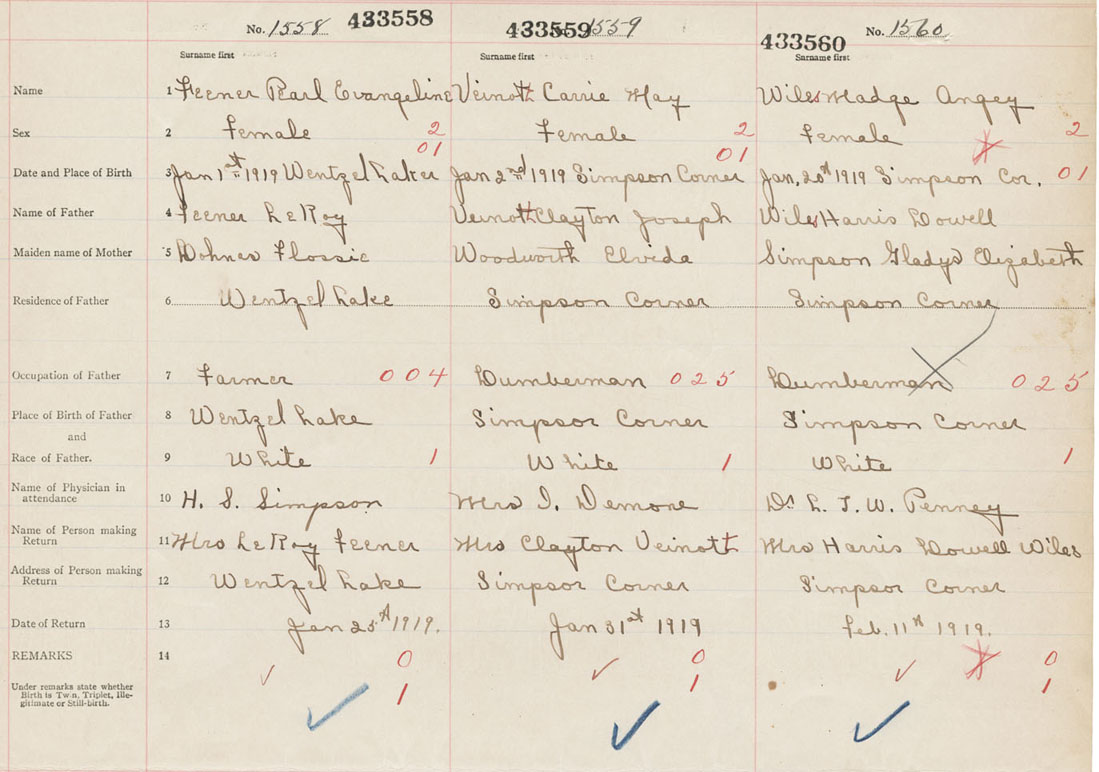 No. 1558 433558 433559 1559 433560 No. 1560
Surname first Surname first Surname first
Name 1 Feener Pearl Evangeline Veinott Carrie May Wiles Madge Angey
Sex 2 Female 2 Female 2 Female 2
01 01
Date and Place of Birth 3 Jan 1st 1919 Wentzel Lake Jan 2nd 1919 Simpson Corner Jan, 20th 1919 Simpson Cor. 01
Name of Father 4 Feener LeRoy Veinott Clayton Joseph Wiles Harris Dowell
Maiden name of Mother 5 Flossie Woodworth Elvida Simpson Gladys Elizabeth
Residence of Father 6 Wentzel Lake Simpson Corner Simpson Corner
Occupation of Father 7 Farmer 004 Lumberman 025 Lumberman 025
Place of Birth of Father 8 Wentzel Lake Simpsor Corner Simpson Corner
and
Race of Father. 9 White 1 White 1 White 1
Name of Physician in
attendance 10 H. S. Simpson Mrs I. Demone Dr L. T. W. Penney
Name of Person making
Return 11 Mrs LeRoy Feener Mrs Clayton Veinott Mrs Harris Dowell Wiles
Address of Person making
Return 12 Wentzel Lake Simpsor Corner Simpsor Corner
Date of Return 13 Jan 25th 1919. Jan 31st 1919 Feb. 11th 1919.
REMARKS 14 0 0 0
Under remarks state whether
Birth is Twin, Triplet, Ille-
gitimate or Still-birth. 1 1 1